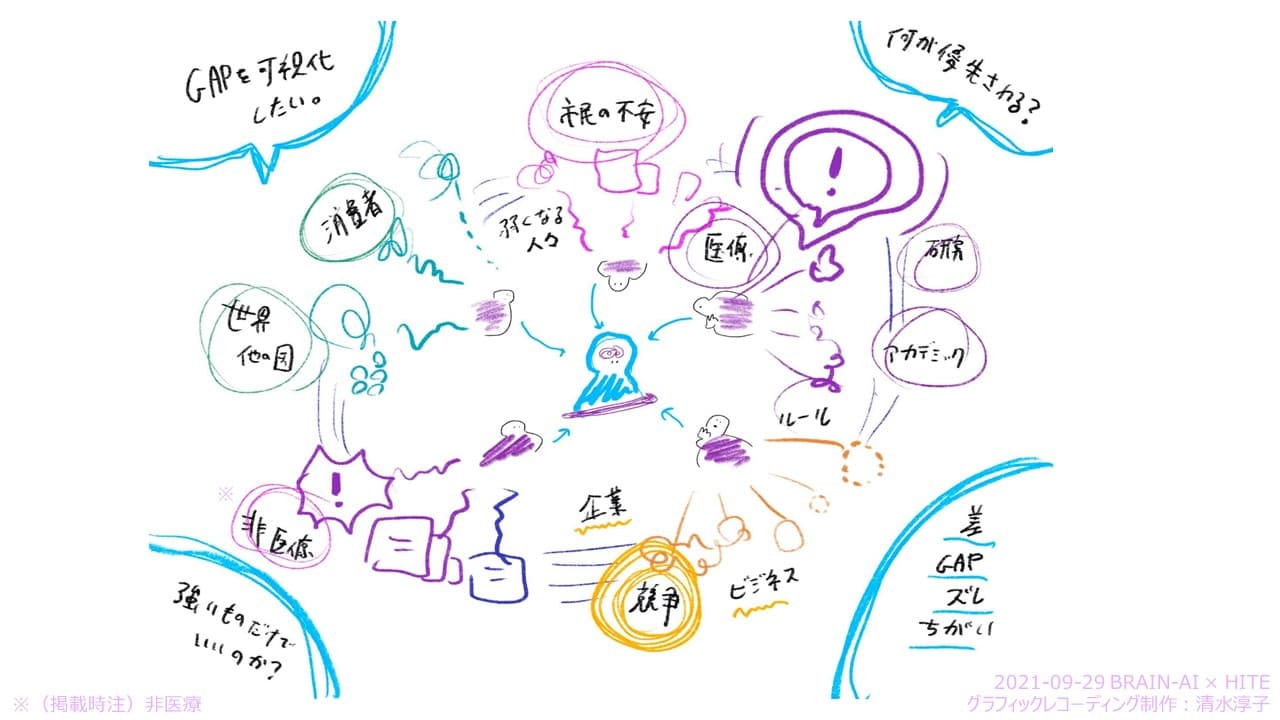 GAPを可視化
したい。
何が優先される?
市民の不安
消費者
弱くなる
人々
医療
研究
世界
他の国
アカデミック
ルール
※
非医療
企業
競争
ビジネス
強いものだけで
いいのか?
差
GAP
ズレ
ちがい
※（掲載時注）非医療
2021-09-29 BRAIN-AI × HITE
グラフィックレコーディング制作：清水淳子